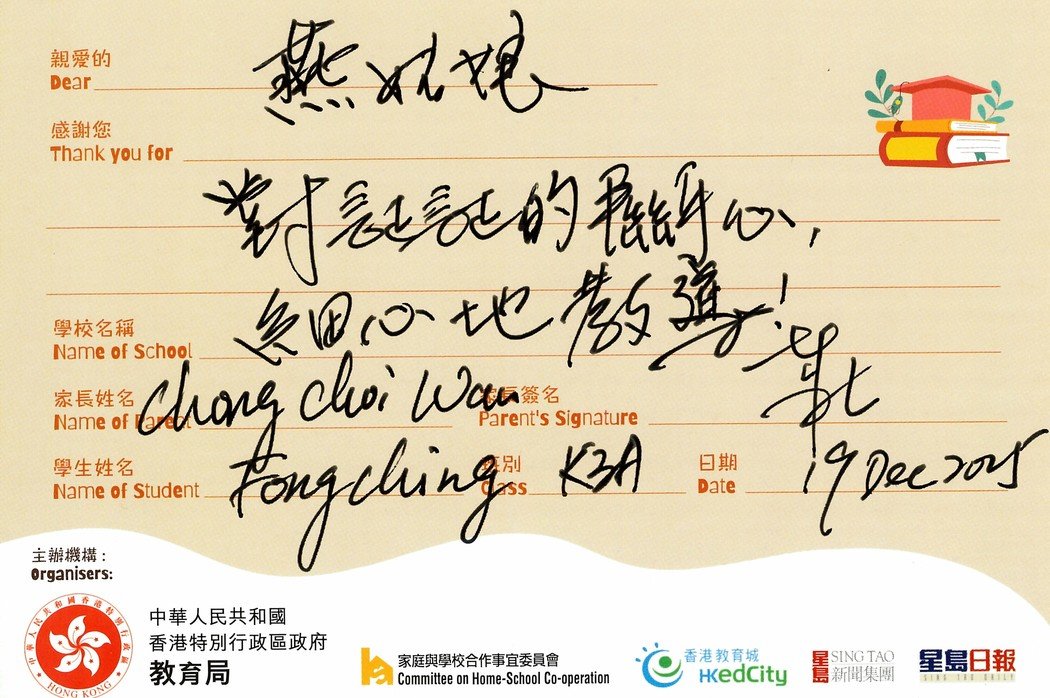 親愛的
Dear 燕姑娘
感謝您
Thank you for
對証証的關心,
細心地教導!
學校名稱
Name of School
家長姓名 家長簽名
Name of Parent Chong Choi Wan Parent's Signature
學生姓名 班別 日期
Name of Student Fong ching Class K3A Date 19 Dec 2025
主辦機構:
Organisers:
中華人民共和國
香港特別行政區政府
教育局
中華人民共和國香港特別行政區
HONG KONG
家庭與學校合作事宜委員會
Committee on Home-School Co-operation
香港教育城
HKedCity
星島 SING TAO
新聞集團
星島日報
SING TAO DAILY